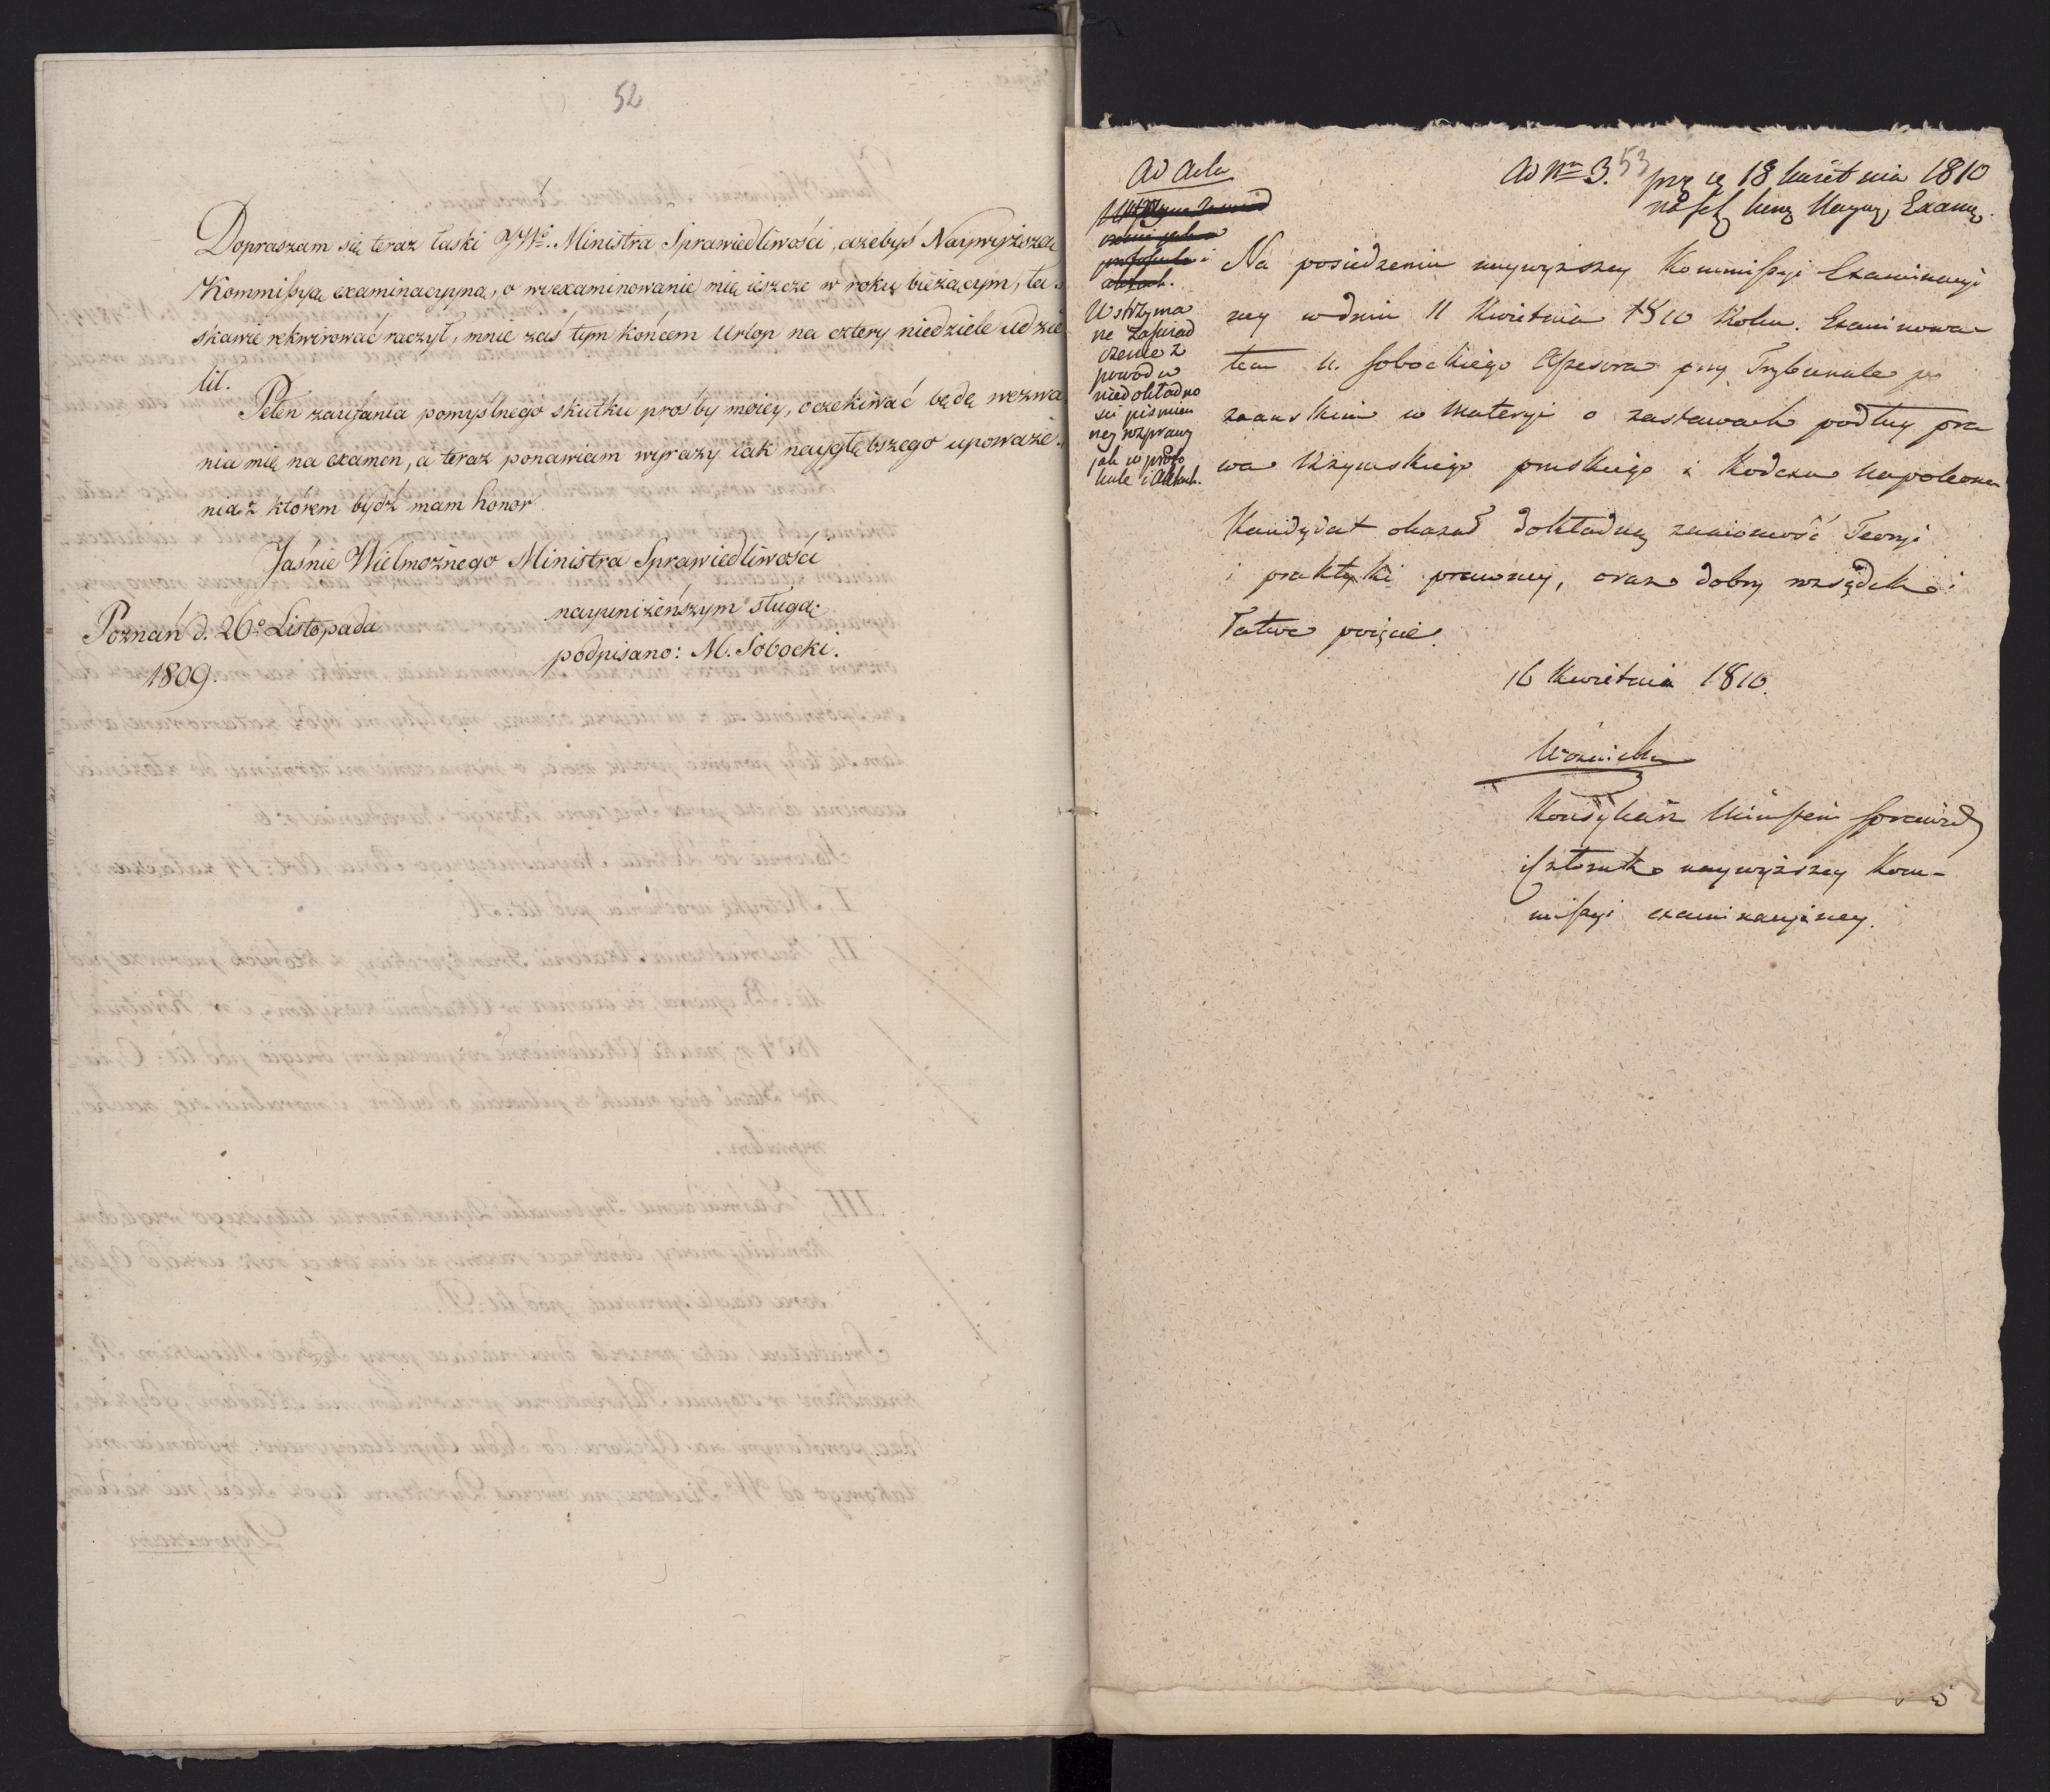 52
Dopraszam się teraz łaski JWo. Ministra Sprawiedliwości, ażebyś Naywyższą
Kommissyą examinacyyną, o wyexaminowanie mię ieszcze w roku bieżącym, ła-
skawie rekwirować raczył, mnie zaś tym końcem Urlop na cztery niedziele udzie
lił.
Pełen zaufania pomyślnego skutku prosby moiey, oczekiwać będę wezwa
nia mię na examen, a teraz ponawiam wyrazy iak naygłębszego upoważe-
nia z którem bydź mam honor
Jaśnie Wielmożnego Ministra Sprawiedliwości
nayuniżeńszym sługą.
podpisano: M. Sobocki.
Poznań d. 26o Listopada
1809.
Ad Acta
Wstrzyma
ne Zaswiad
czenie z
powodu
niedokładno
sci piśmien
ney rozprawy
jak w proto
kule i Aktach.
Ad Nm 3. 53
18 kwietnia 1810
Na posiedzeniu naywyższey Kommissyi Examinacyi
ney w dniu 11 Kwietnia 1810 Roku. Examinowa
łem U. Sobockiego Assesora przy Trybunale po
znanskim w Materyi o zastawach podług pra
wa Rzymskiego pruskiego i Kodexu Napoleona
Kandydat okazał dokładną znaiomość Teoryi
i praktyki prawney, oraz dobry rozsądek i
łatwe poięcie.
16 Kwietnia 1810.
Woźnicki
Konsyliarz Ministeri Sprawied
i Członek naywyższey Kom-
missyi examinacyiney.